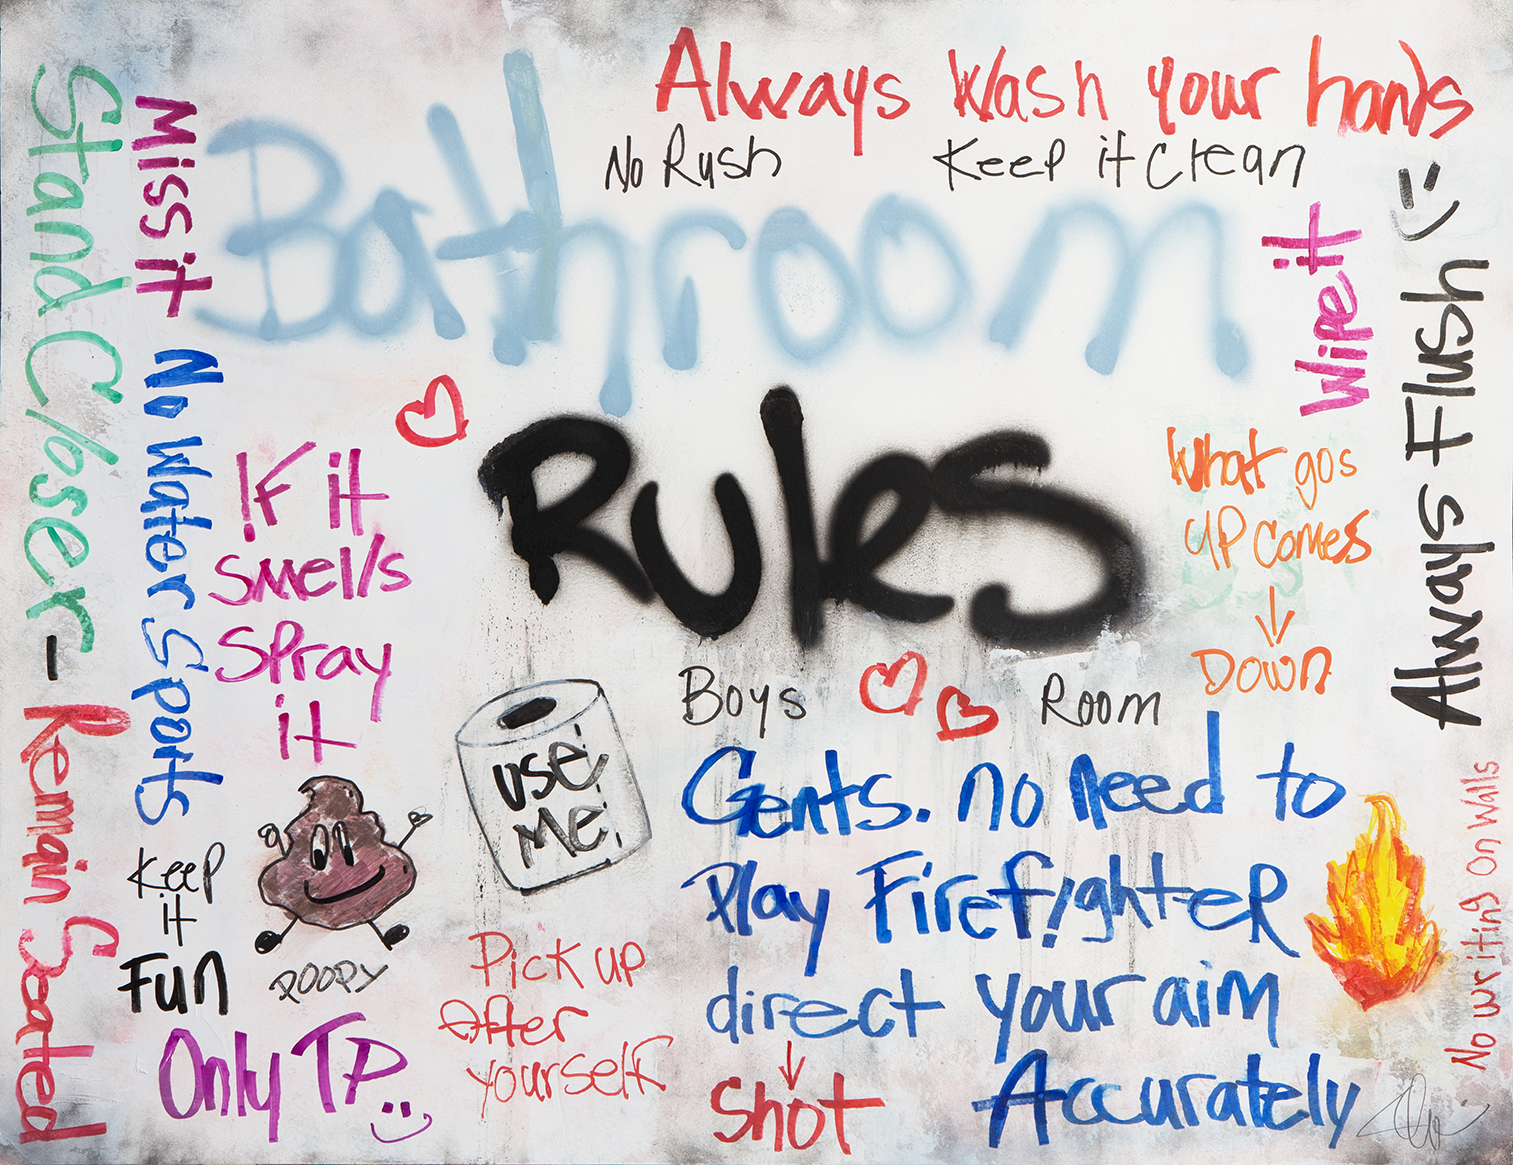 Always Wash your hands
No Rush
Keep it Clean
Bathroom
Rules
Stand Closer -
Remain Seated
Miss it
No Water Sports
Wipe it
Always Flush
What gos
up comes
Down
IF it
smells
Spray
it
Boys Room
use
me
Gents. no need to
Play Firefighter
direct your aim
shot Accurately
Keep
it
Fun
POOPY
Only TP
Pick up
After
yourself
No writing on walls